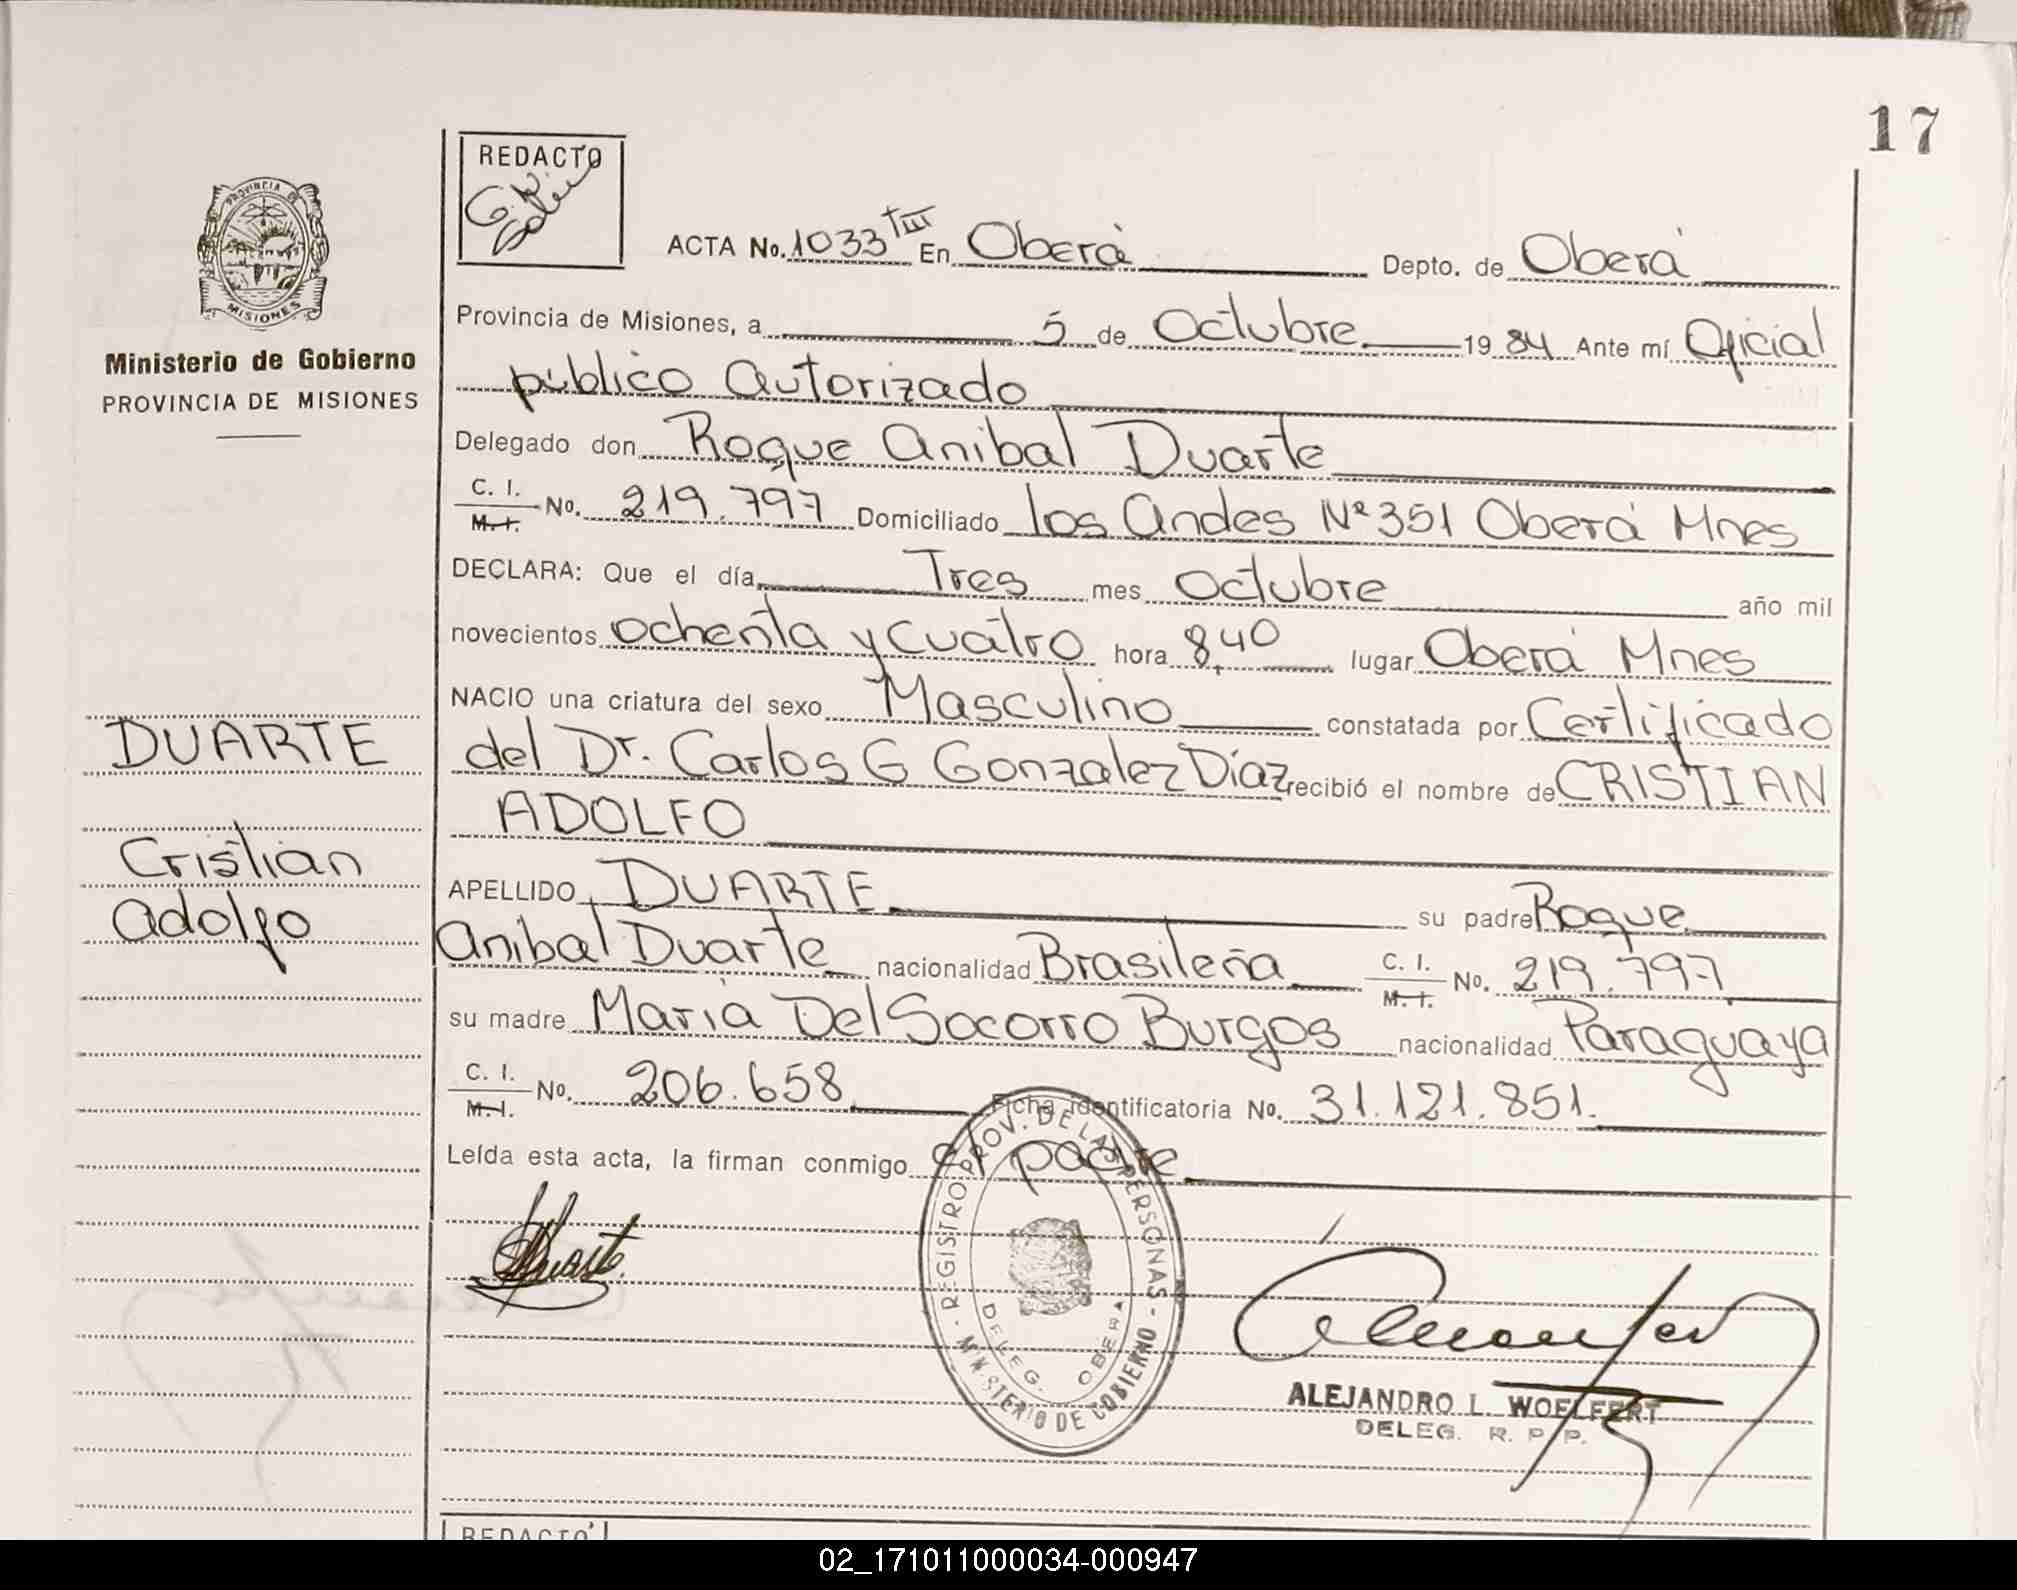 17
REDACTO
PROVINCIA DE
MISIONES
Ministerio de Gobierno
PROVINCIA DE MISIONES
ACTA No. 1033 TIII En Oberá Depto. de Oberá
Provincia de Misiones, a 5 de Octubre 1984 Ante mí Oficial
público Autorizado
Delegado don Roque Anibal Duarte
C. I. M. I. No. 219.797 Domiciliado los Andes Nº 351 Oberá Mnes
DECLARA: Que el día Tres mes Octubre año mil
novecientos ochenta y cuatro hora 8,40 lugar Oberá Mnes
NACIO una criatura del sexo Masculino constatada por Certificado
del Dr. Carlos G Gonzalez Díaz recibió el nombre de CRISTIAN
ADOLFO
APELLIDO DUARTE su padre Roque
Anibal Duarte nacionalidad Brasileña C. I. M. I. No. 219.797
su madre María Del Socorro Burgos nacionalidad Paraguaya
C. I. M. I. No. 206.658 Ficha identificatoria No. 31.121.851.
Leída esta acta, la firman conmigo el padre
DUARTE
Cristian
Adolfo
Duarte
REGISTRO PROV. DE LAS PERSONAS - MINISTERIO DE GOBIERNO -
DELEG. OBERA
ALEJANDRO L. WOELFERT
DELEG. R. P. P.
REDACTO
02_171011000034-000947